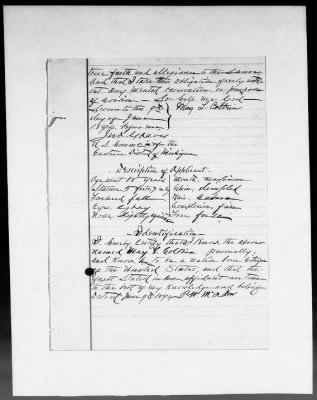 true faith and allegiance to the same
And that I take this obligation freely with
out any mental reservation or purpose
of evasion — So help me God —
Sworn to this 9th } Mary L Coldrin
day of June
1894 before me
Jno Graves
U. S. Commr for the
Eastern District of Michigan
Description of Applicant
Age about 18 years Mouth, medium
Stature 5 feet, in Chin, dimpled
Forehead full Hair, auburn
Eyes, Gray Complexion, fair
Nose, Slightly Face
Identification
I hereby Certify that I know the above
named Mary L Coldrin personally,
and know her to be a native born Citizen
of the United States, and that the
facts stated in her affidavit are true
to the best of my knowledge and belief
Detroit June 9th 1894